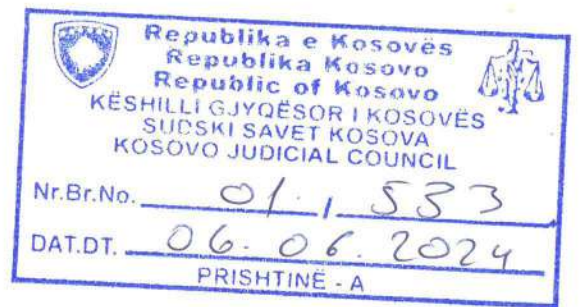 Republika e Kosovës
Republika Kosovo
Republic of Kosovo
KËSHILLI GJYQËSOR I KOSOVËS
SUDSKI SAVET KOSOVA
KOSOVO JUDICIAL COUNCIL
Nr.Br.No. 01. / 533
DAT.DT. 06.06.2024
PRISHTINË - A